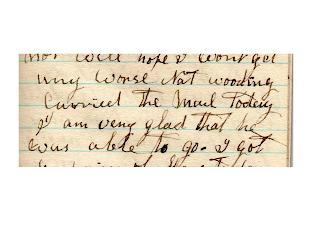 not well hope I wont get
any worse Nat wooding
Carried the Mail Today
I am very glad that he
was able to go. I got